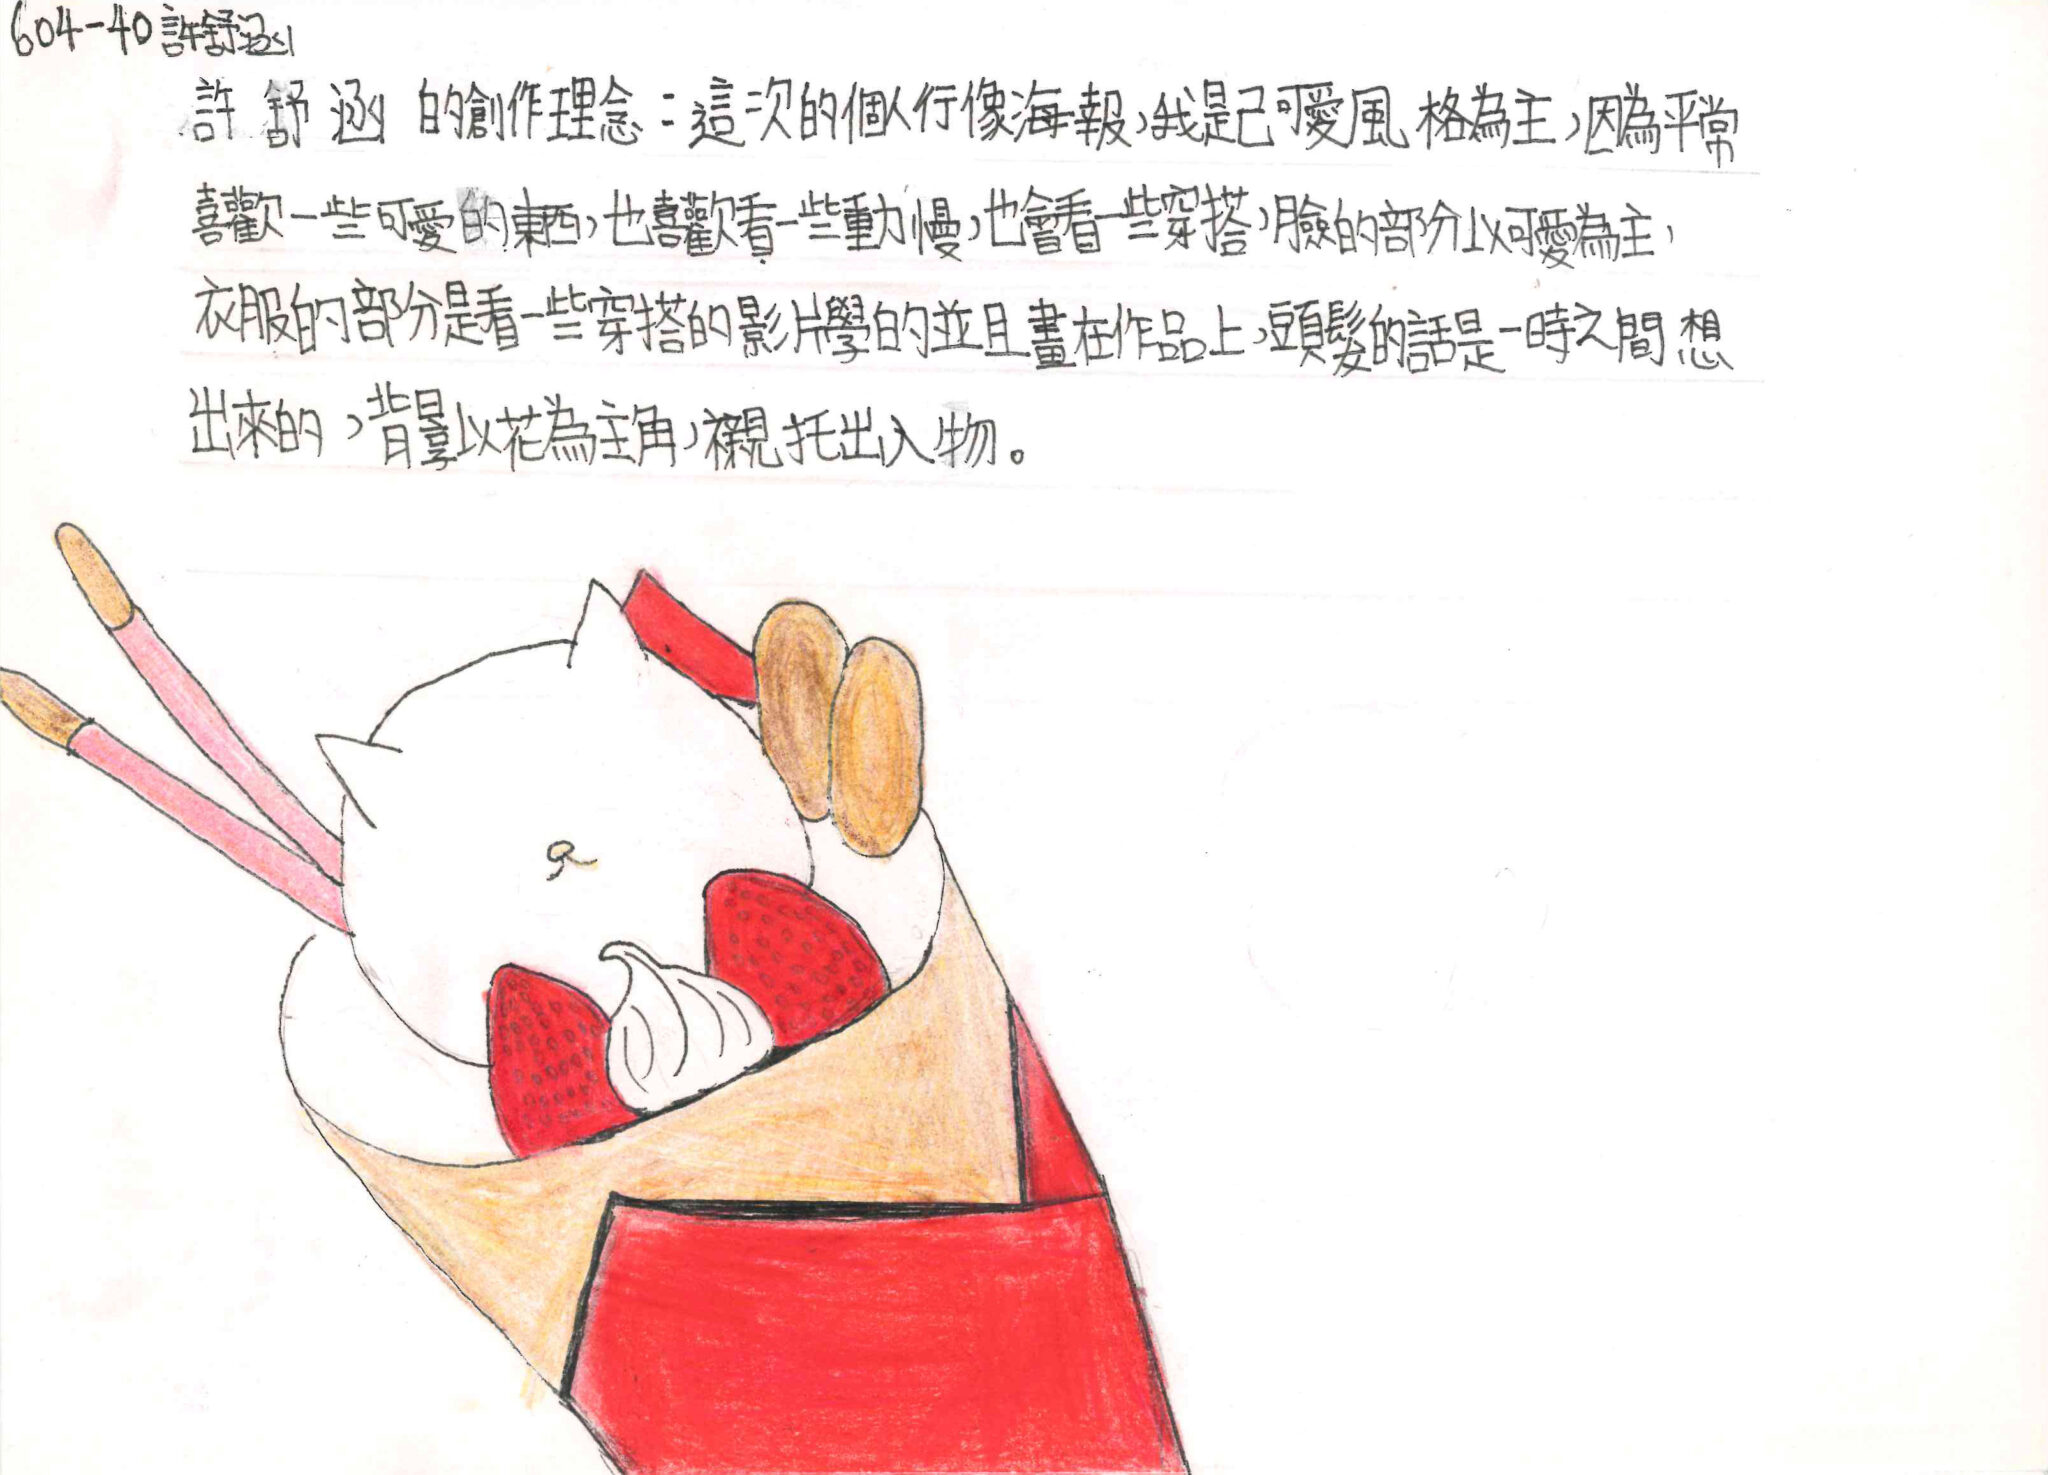 604-40許舒涵
許舒涵的創作理念:這次的個人行像海報,我是己可愛風格為主,因為平常
喜歡一些可愛的東西,也喜歡看一些動慢,也會看一些穿搭,臉的部分以可愛為主,
衣服的部分是看一些穿搭的影片學的並且畫在作品上,頭髮的話是一時之間想
出來的,背景以花為主角,襯托出人物。